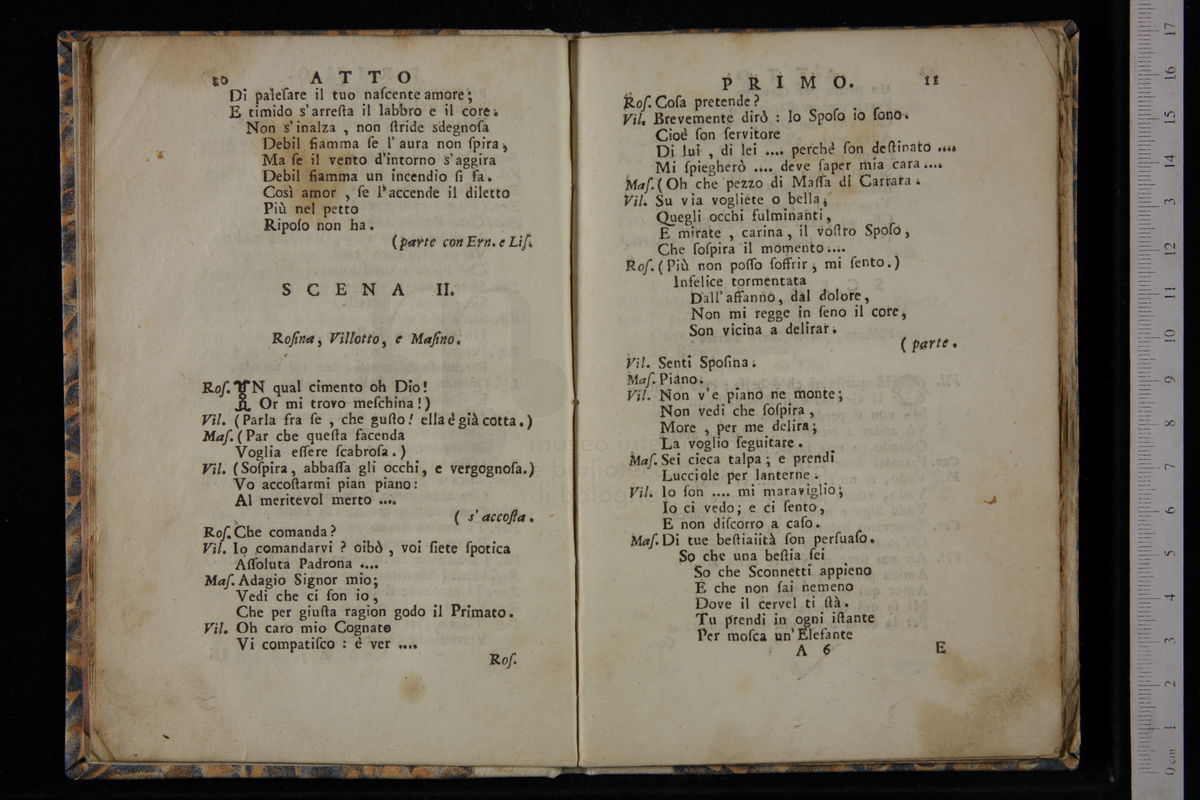 10 ATTO
Di paleſare il tuo naſcente amore;
E timido s'arreſta il labbro e il core.
Non s'inalza , non ſtride sdegnoſa
Debil fiamma ſe l'aura non ſpira,
Ma ſe il vento d'intorno s'aggira
Debil fiamma un incendio ſi fa.
Così amor , ſe l'accende il diletto
Più nel petto
Ripoſo non ha.
(parte con Ern. e Liſ.
SCENA II.
Roſina, Villotto, e Maſino.
Roſ. IN qual cimento oh Dio!
Or mi trovo meſchina!)
Vil. (Parla fra ſe , che guſto! ella è già cotta.)
Maſ. (Par che queſta facenda
Voglia eſſere ſcabroſa.)
Vil. (Soſpira, abbaſſa gli occhi, e vergognoſa.)
Vo accoſtarmi pian piano:
Al meritevol merto ....
( s'accoſta.
Roſ. Che comanda?
Vil. Io comandarvi ? oibò , voi ſiete ſpotica
Aſſoluta Padrona ....
Maſ. Adagio Signor mio;
Vedi che ci ſon io,
Che per giuſta ragion godo il Primato.
Vil. Oh caro mio Cognato
Vi compatiſco : è ver ....
Roſ.
PRIMO. 11
Roſ. Coſa pretende?
Vil. Brevemente dirò : Io Spoſo io ſono.
Cioè ſon ſervitore
Di lui , di lei .... perchè ſon deſtinato ....
Mi ſpiegherò .... deve ſaper mia cara ....
Maſ. (Oh che pezzo di Maſſa di Carrara.
Vil. Su via vogliete o bella,
Quegli occhi fulminanti,
E mirate , carina , il voſtro Spoſo,
Che ſoſpira il momento ....
Roſ. (Più non poſſo ſoffrir, mi ſento.)
Infelice tormentata
Dall'affanno, dal dolore,
Non mi regge in ſeno il core,
Son vicina a delirar.
( parte.
Vil. Senti Spoſina.
Maſ. Piano.
Vil. Non v'e piano ne monte;
Non vedi che ſoſpira,
More , per me delira;
La voglio ſeguitare.
Maſ. Sei cieca talpa; e prendi
Lucciole per lanterne.
Vil. Io ſon .... mi maraviglio;
Io ci vedo; e ci ſento,
E non diſcorro a caſo.
Maſ. Di tue beſtiaiità ſon perſuaſo.
So che una beſtia ſei
So che Sconnetti appieno
E che non ſai nemeno
Dove il cervel ti ſtà.
Tu prendi in ogni iſtante
Per moſca un'Elefante
A 6 E